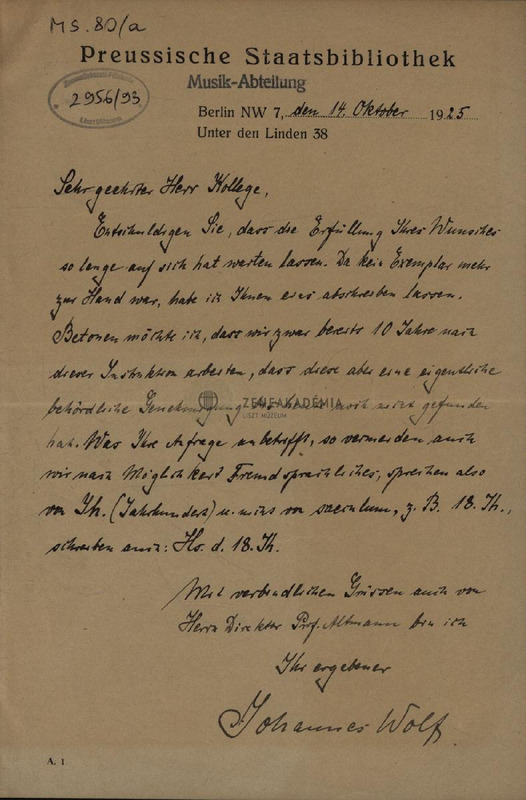 MS. 80/a
Preussische Staatsbibliothek
Musik-Abteilung
2956/93
Berlin NW 7, den 14. Oktober 1925
Unter den Linden 38
Sehr geehrter Herr Kollege,
Entschuldigen Sie, dass die Erfüllung Ihres Wunsches
so lange auf sich hat warten lassen. Da kein Exemplar mehr
zur Hand war, habe ich Ihnen eins abschreiben lassen.
Betonen möchte ich, dass wir zwar bereits 10 Jahre nach
dieser Instruktion arbeiten, dass diese aber eine eigentliche
behördliche Genehmigung noch nicht gefunden
hat. Was Ihre Anfrage anbetrifft, so vermeiden auch
wir nach Möglichkeit Fremdsprachliches, sprechen also
von Jh. (Jahrhundert) u. nichts von saeculum, z. B. 18. Jh.,
schreiben auch: Hs. d. 18. Jh.
Mit verbindlichen Grüssen auch von
Herrn Direktor Prof. Altmann bin ich
Ihr ergebener
Johannes Wolf.
ZENEAKADÉMIA
LISZT MÚZEUM
A. 1